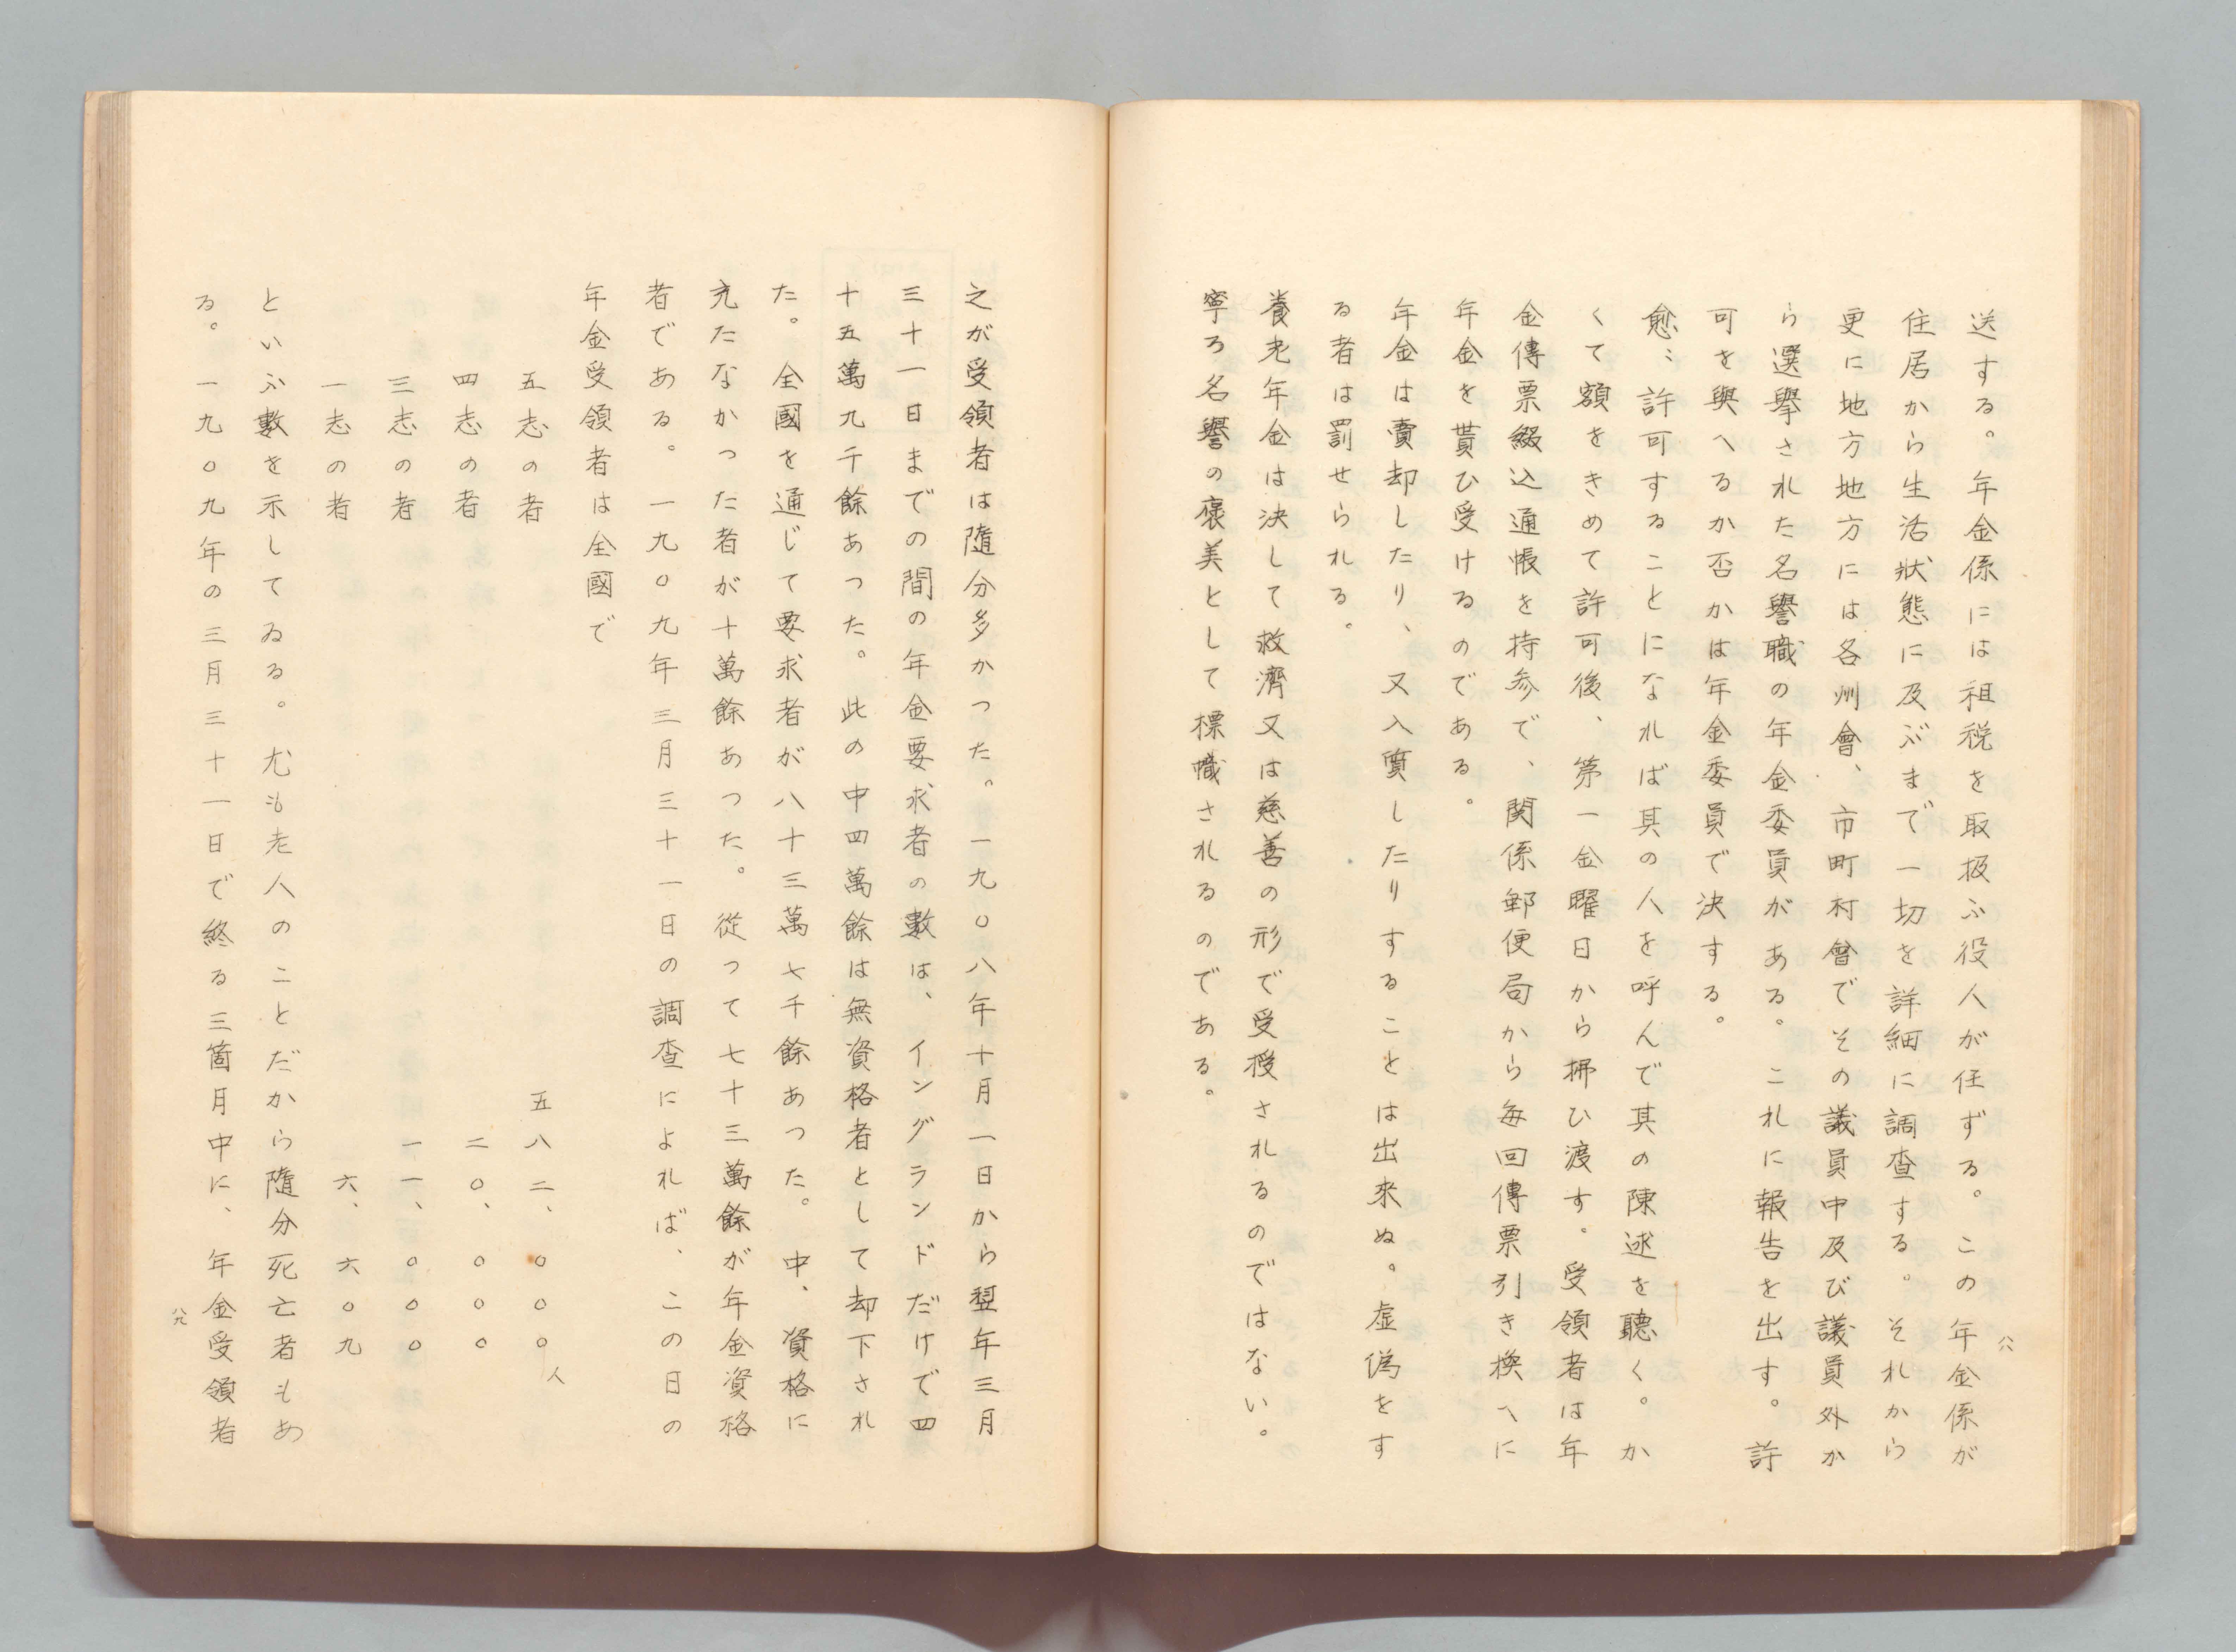 送する。年金係には租税を取扱ふ役人が任ずる。この年金係が
住居から生活狀態に及ぶまで一切を詳細に調査する。それから
更に地方地方には各州會、市町村會でその議員中及び議員外か
ら選擧された名譽職の年金委員がある。これに報告を出す。許
可を與へるか否かは年金委員で決する。
愈〻許可することになれば其の人を呼んで其の陳述を聽く。か
くて額をきめて許可後、第一金曜日から拂ひ渡す。受領者は年
金傳票綴込通帳を持参で、関係郵便局から毎回傳票引き換へに
年金を貰ひ受けるのである。
年金は賣却したり、又入質したりすることは出來ぬ。虚偽をす
る者は罰せられる。
養老年金は決して救濟又は慈善の形で受授されるのではない。
寧ろ名譽の褒美として標幟されるのである。
八
之が受領者は隨分多かつた。一九〇八年十月一日から翌年三月
三十一日までの間の年金要求者の數は、イングランドだけで四
十五萬九千餘あつた。此の中四萬餘は無資格者として却下され
た。全國を通じて要求者が八十三萬七千餘あつた。中、資格に
充たなかつた者が十萬餘あつた。從つて七十三萬餘が年金資格
者である。一九〇九年三月三十一日の調査によれば、この日の
年金受領者は全國で
五志の者 五八二、〇〇〇人
四志の者 二〇、〇〇〇
三志の者 一一、〇〇〇
一志の者 六、六〇九
といふ數を示してゐる。尤も老人のことだから隨分死亡者もあ
る。一九〇九年の三月三十一日で終る三箇月中に、年金受領者
八九